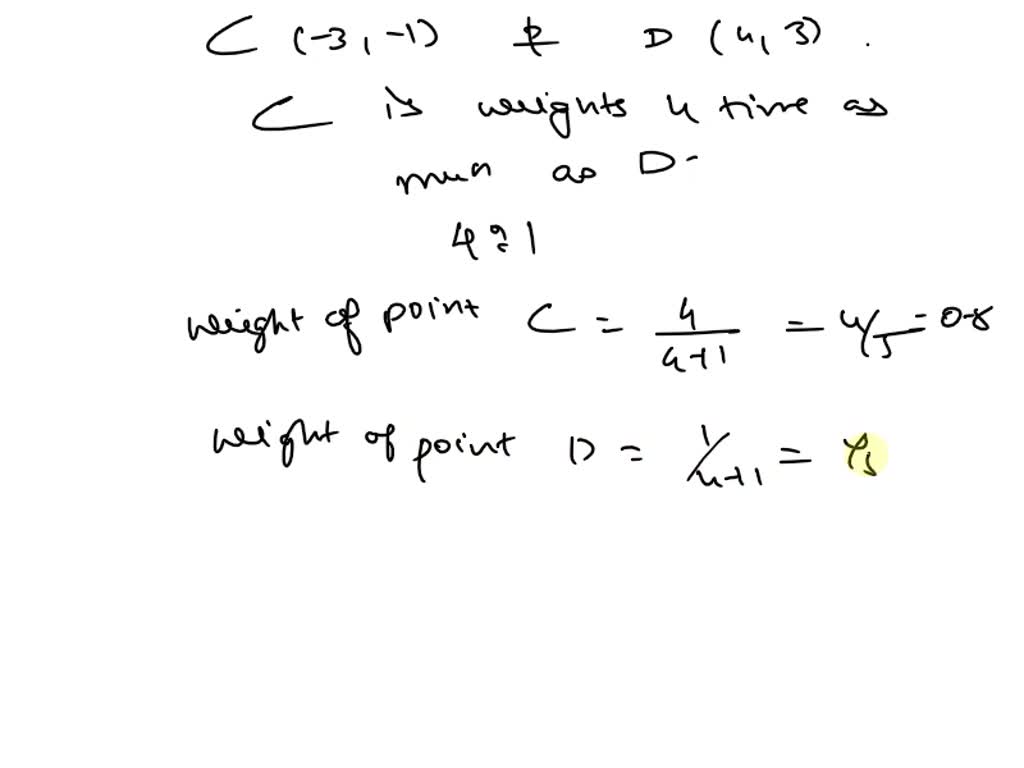 C (-3, -1) & D (4, 3).
C is weights 4 time as
much as D.
4 : 1
weight of point C = 4/4+1 = 4/5 = 0.8
weight of point D = 1/4+1 = 1/5